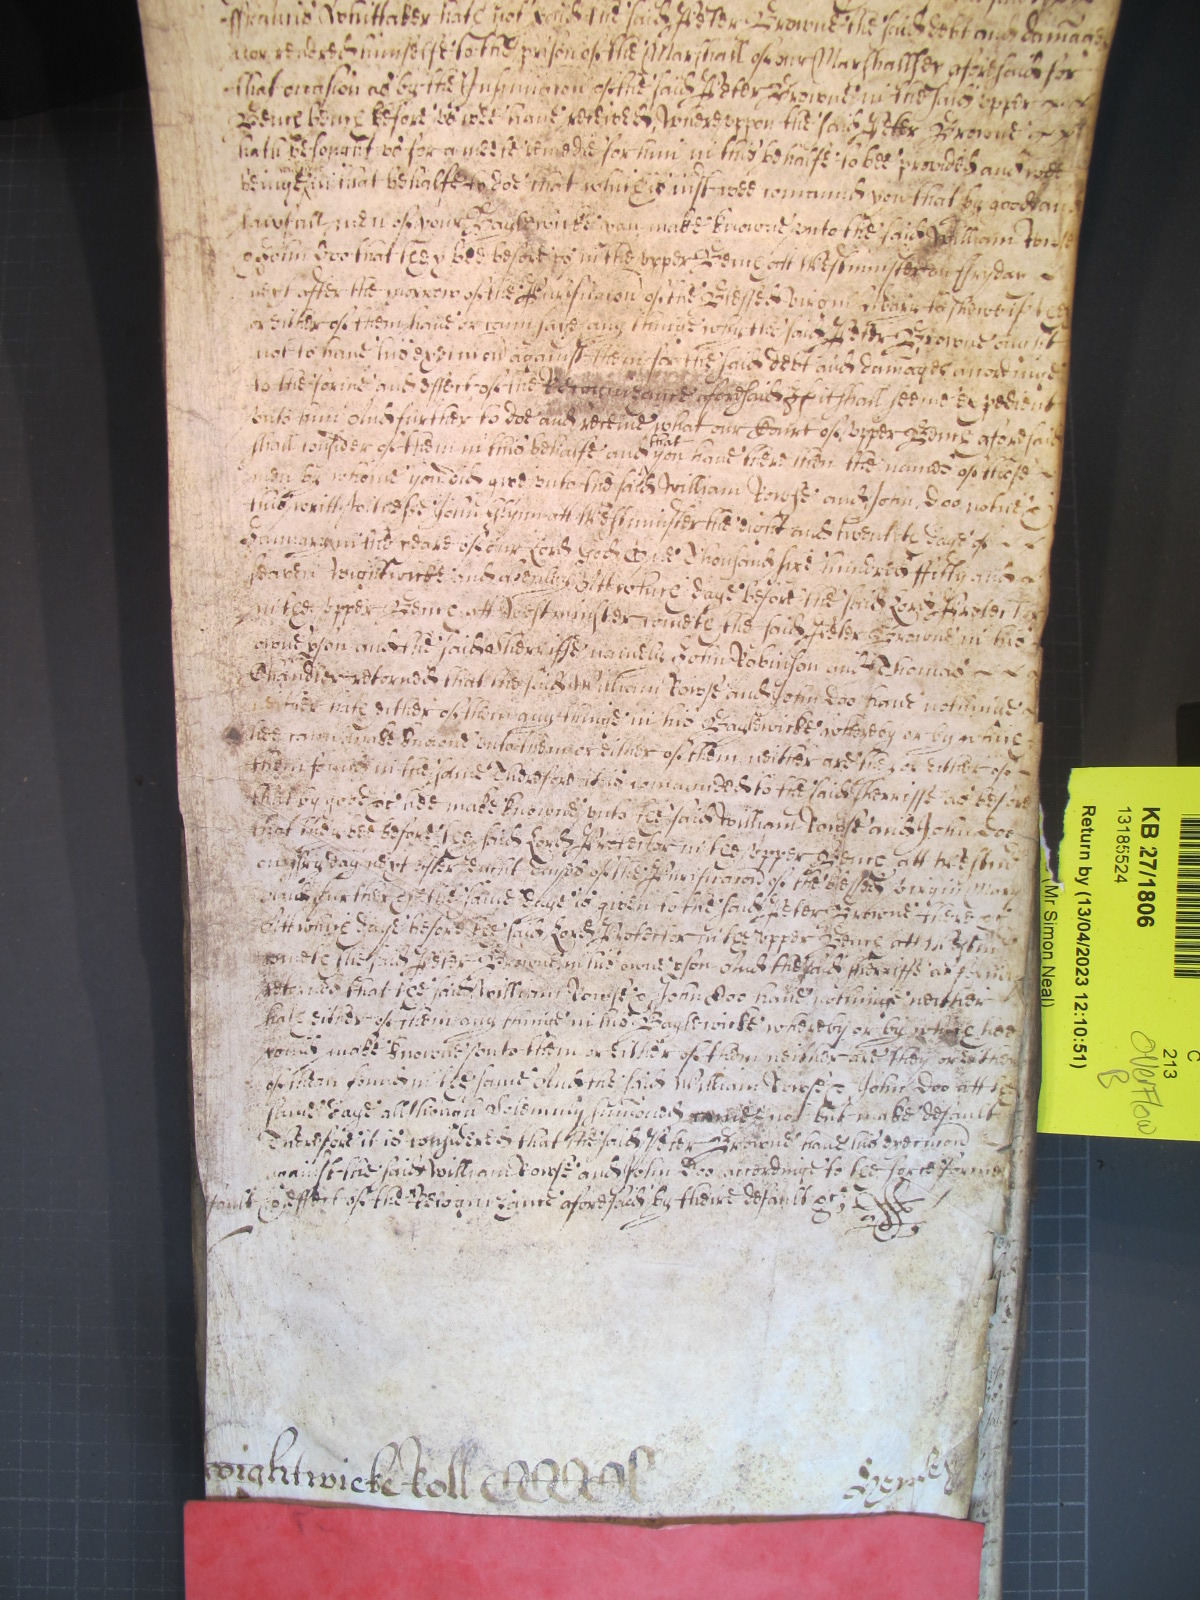 ffrancis Whittaker hath not payd the said Peter Browne the said debt and damages
nor rendred himselfe to the prison of the Marshall of our Marshallsey aforesaid for
that occasion as by the Insinuacon of the said Peter Browne in the said upper
Bench before us wee have received, Whereuppon the said Peter Browne
hath besought us for a meete remedie for him in this behalfe to bee provided and wee
being in that behalfe to doe that which is iust wee comaund you that by good and
lawfull men of your Baylewicke you make knowne unto the said William Rowse
& John Doo that they bee before us in the upper Bench att Westminster on ffryday
next after the morrow of the Purificacon of the Blessed Virgin Mary to shewe if they
or either of them have or cann saye any thinge why the said Peter Browne ought
not to have his execucon against them for the said debt and damages accordinge
to the forme and effect of the Recognizance aforesaid if it shall seeme expedient
unto him And further to doe and receive what our Court of upper Bench aforesaid
shall consider of them in this behalfe and that you have there then the names of those
men by whome you did give unto the said William Rowse and John Doo notice &
this writt Witnesse John Glynn att Westminster the eight and twentith daye of
January in the yeare of our Lord God One Thousand sixe hundred ffifty and
seaven Wightwicke and Att which daye before the said Lord Protector
in the upper Bench att Westminster cometh the said Peter Browne in his
owne pson and the said Sherriffe namely John Robinson and Thomas
Chandler retorned that the said William Rowse and John Doo have nothinge
neither hath either of them any thinge in his Baylewicke whereby or by which
hee cann make knowne unto them or either of them neither are they or either of
them found in the same Therefore it is comaunded to the said Sherriffe as before
that by good &c hee make knowne unto the said William Rowse and John Doo
that they bee before the said Lord Protector in the upper Bench att Westm
on ffryday next after eight dayes of the Purificacon of the blessed Virgin Mary
and further &c the same daye is given to the said Peter Browne there &c
Att which daye before the said Lord Protector in the upper Bench att Westm
cometh the said Peter Browne in his owne pson And the said Sherriffe as before
retorned that the said William Rowse & John Doo have nothinge neither
hath either of them any thinge in his Baylewicke whereby or by which hee
could make knowne unto them or either of them neither are they or either
of them found in the same And the said William Rowse & John Doo att the
same daye allthough solemnly sumoned came not but make default
Therefore it is considered that the said Peter Browne have his execucon
against the said William Rowse and John Doo accordinge to the force forme
& effect of the Recognizance aforesaid by theire default &c
Wightwicke Roll CCCC
KB 27/1806
13185524
Return by (13/04/2023 12:10:51)
Mr Simon Neal)
C
213
Overflow
B